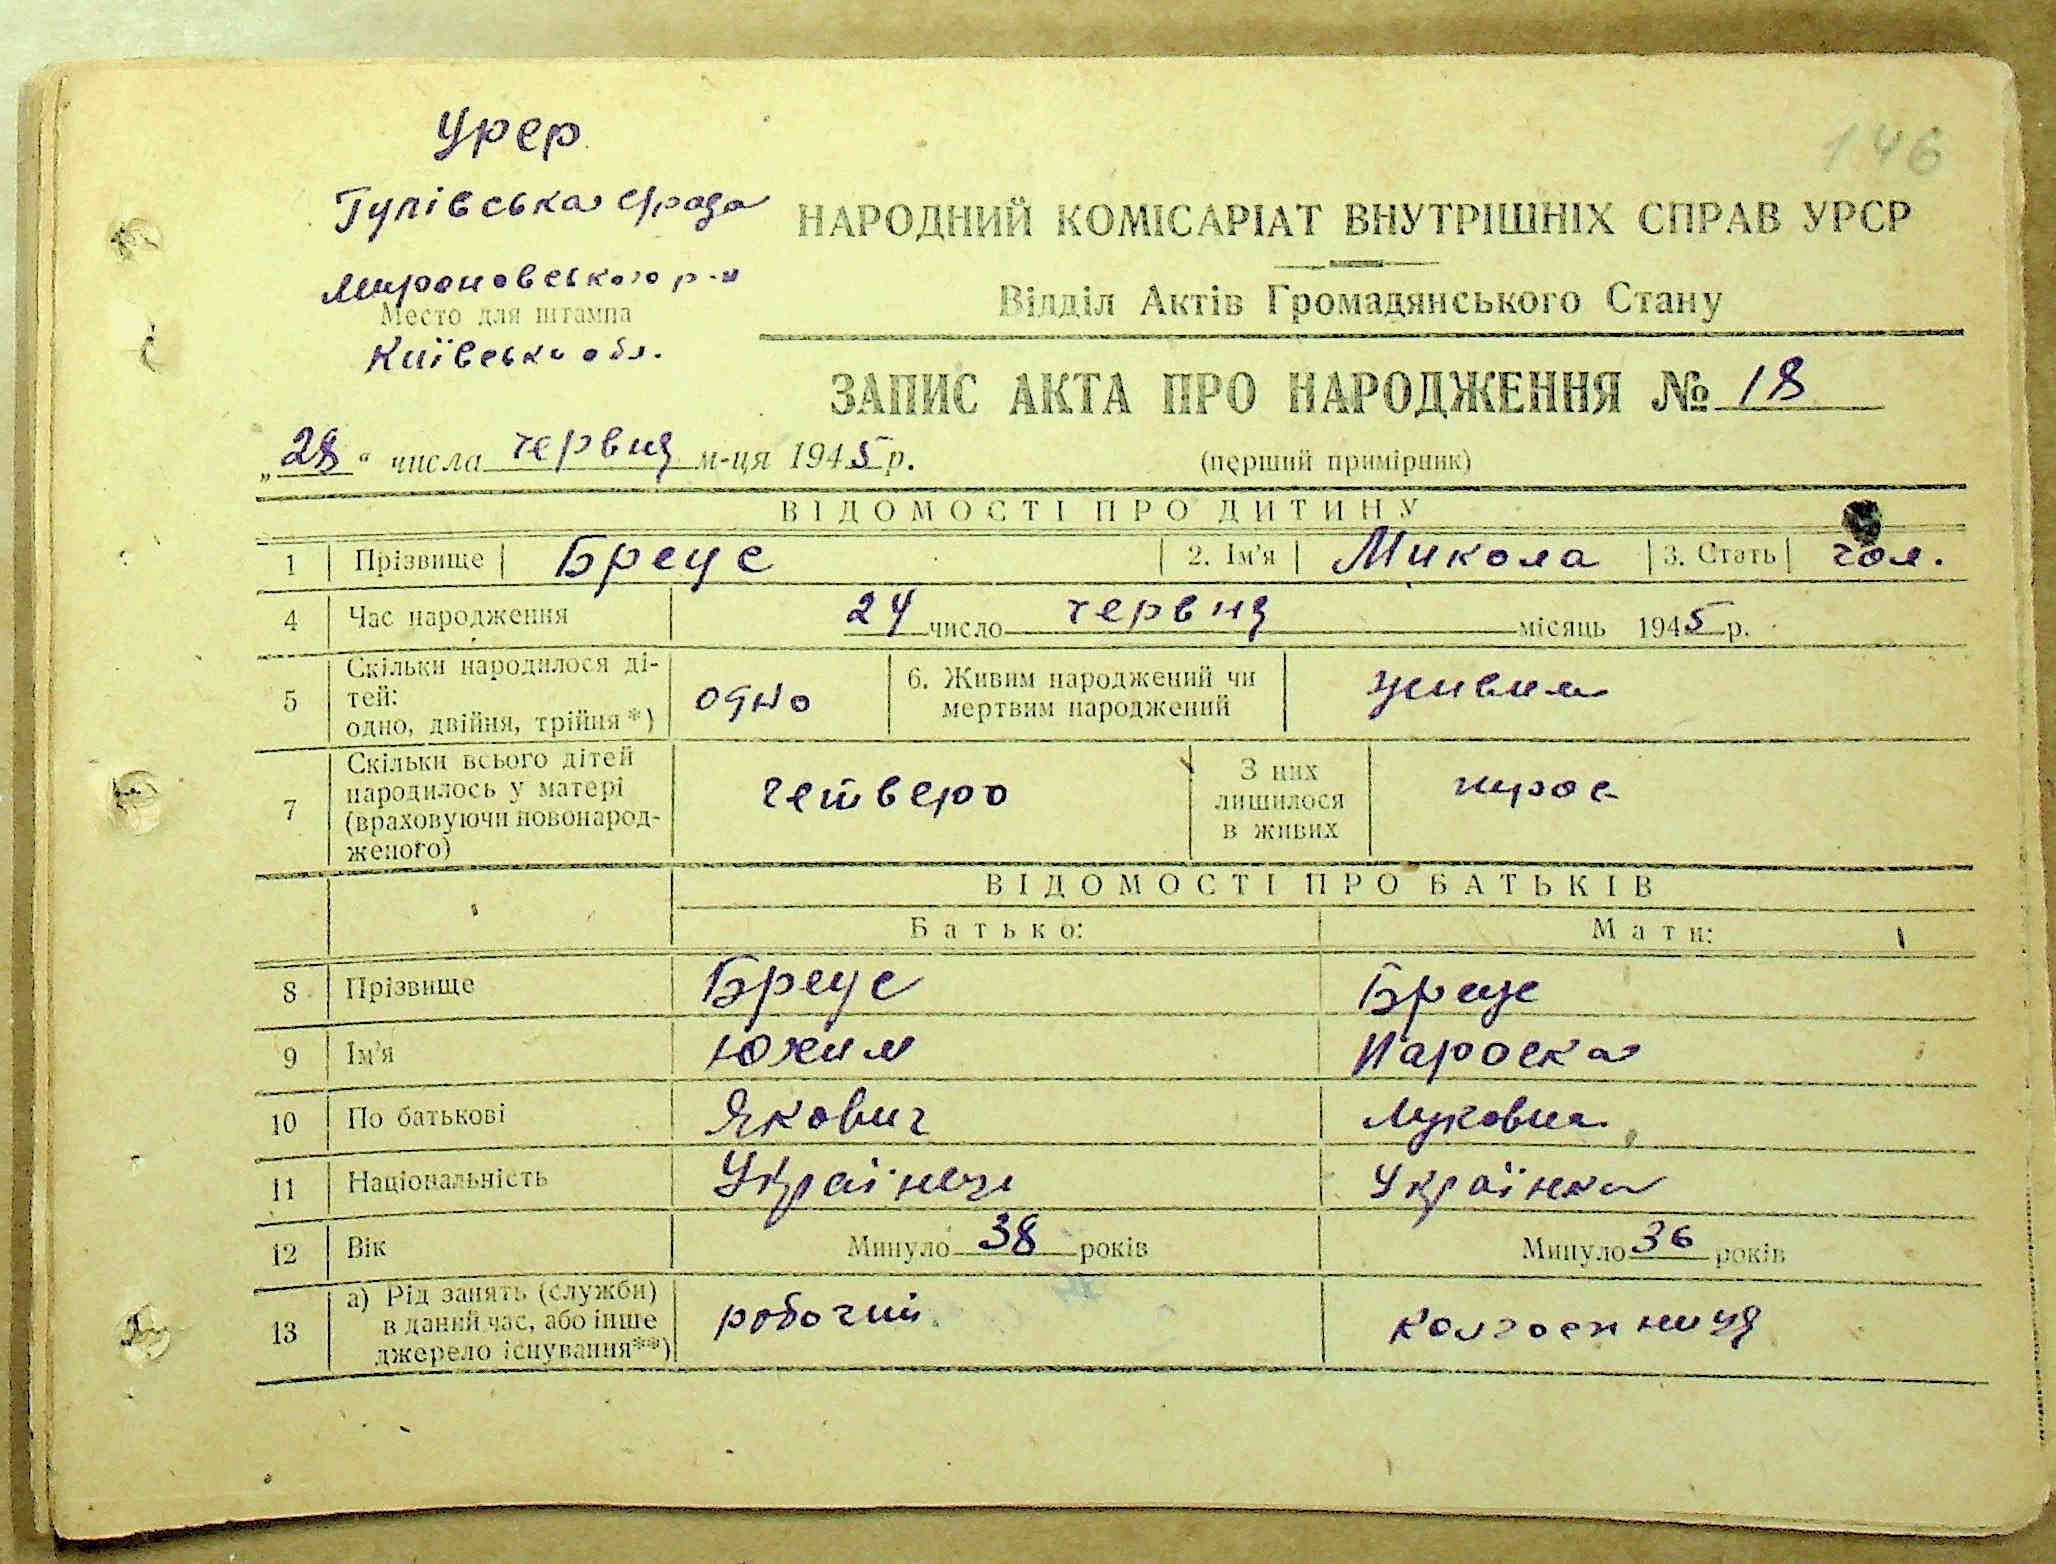 УРСР
146
Гулівська с/рада
НАРОДНИЙ КОМІСАРІАТ ВНУТРІШНІХ СПРАВ УРСР
Мироновського р-н
Відділ Актів Громадянського Стану
Место для штампа
Київська обл.
ЗАПИС АКТА ПРО НАРОДЖЕННЯ № 18
„28“ числа червня м-ця 1945 р.
(перший примірник)
ВІДОМОСТІ ПРО ДИТИНУ
1 Прізвище Бреус 2. Ім'я Микола 3. Стать чол.
4 Час народження 24 число червня місяць 1945 р.
5 Скільки народилося ді-
тей:
одно, двійня, трійня*) одно 6. Живим народжений чи
мертвим народжений живим
7 Скільки всього дітей
народилось у матері
(враховуючи новонарод-
женого) четверо З них
лишилося
в живих
ВІДОМОСТІ ПРО БАТЬКІВ
Батько: Мати:
8 Прізвище Бреус Бреус
9 Ім'я Юхим Пароска
10 По батькові Якович Луковна
11 Національність Українець Українка
12 Вік Минуло 38 років Минуло 36 років
13 а) Рід занять (служби)
в даний час, або інше
джерело існування**) робочий колгоспниця